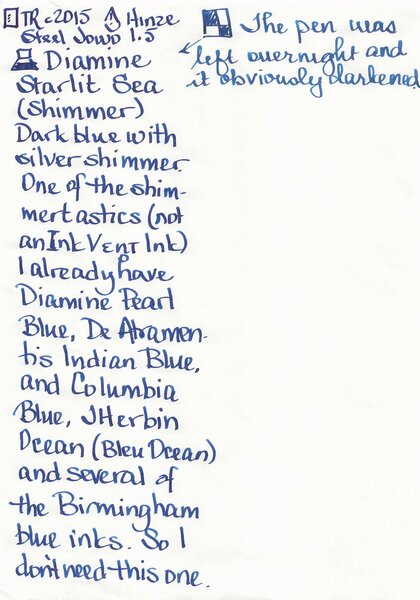 TR c2015 Hinze
Steel Jowo 1.5
Diamine
Starlit Sea
(Shimmer)
Dark blue with
silver shimmer
One of the shim-
mertastics (not
an InkVent Ink)
I already have
Diamine Pearl
Blue, De Atramen-
tis Indian Blue,
and Columbia
Blue, JHerbin
Ocean (Bleu Ocean)
and several of
the Birmingham
blue inks. So I
don't need this one.
The pen was
left overnight and
it obviously darkened